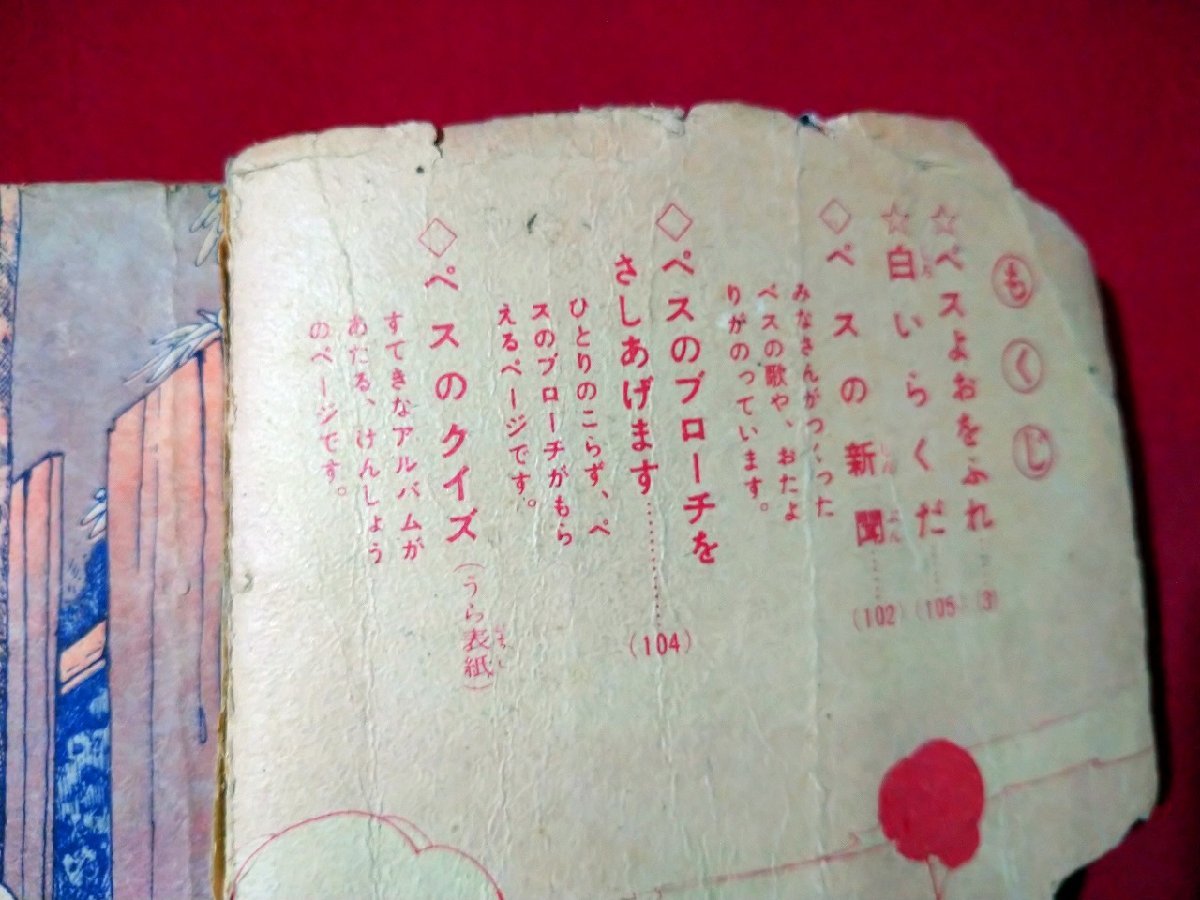 もくじ
☆ペスよおをふれ……(3)
☆白いらくだ……(105)
◇ペスの新聞……(102)
みなさんがつくった
ペスの歌や、おたよ
りがのっています。
◇ペスのブローチを
さしあげます……………(104)
ひとりのこらず、ペ
スのブローチがもら
えるページです。
◇ペスのクイズ(うら表紙)
すてきなアルバムが
あたる、けんしょう
のページです。